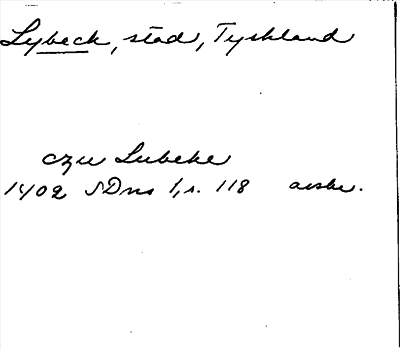 Lybeck, stad, Tyskland
czu Lubeke
1402 SDns 1, s. 118 avskr.